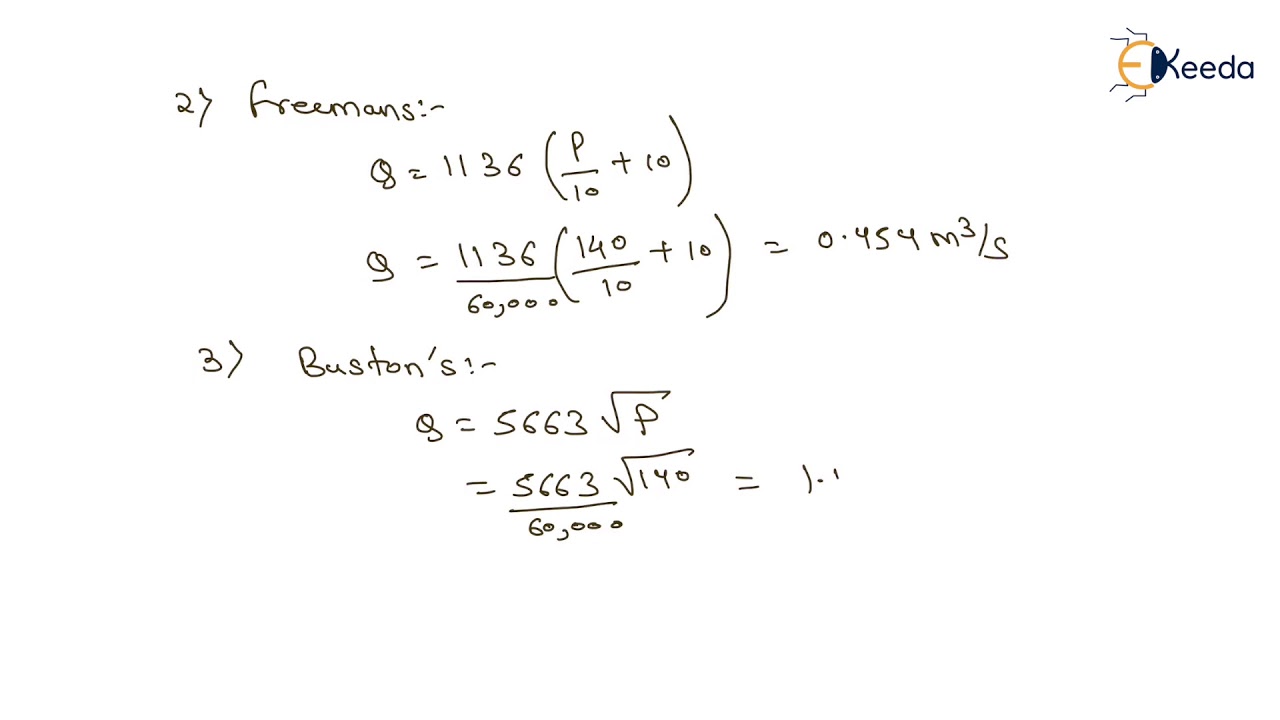 EKeeda
2) Freemans:-
Q = 1136 (P/10 + 10)
Q = 1136/60,000 (140/10 + 10) = 0.454 m³/s
3) Buston's:-
Q = 5663 √P
= 5663/60,000 √140 = 1.1